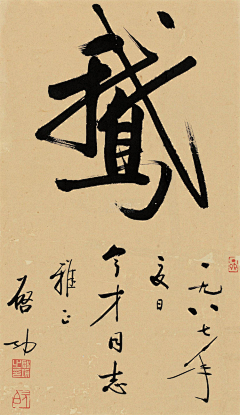 一九八七年
夏日
今才同志
雅正
啓功